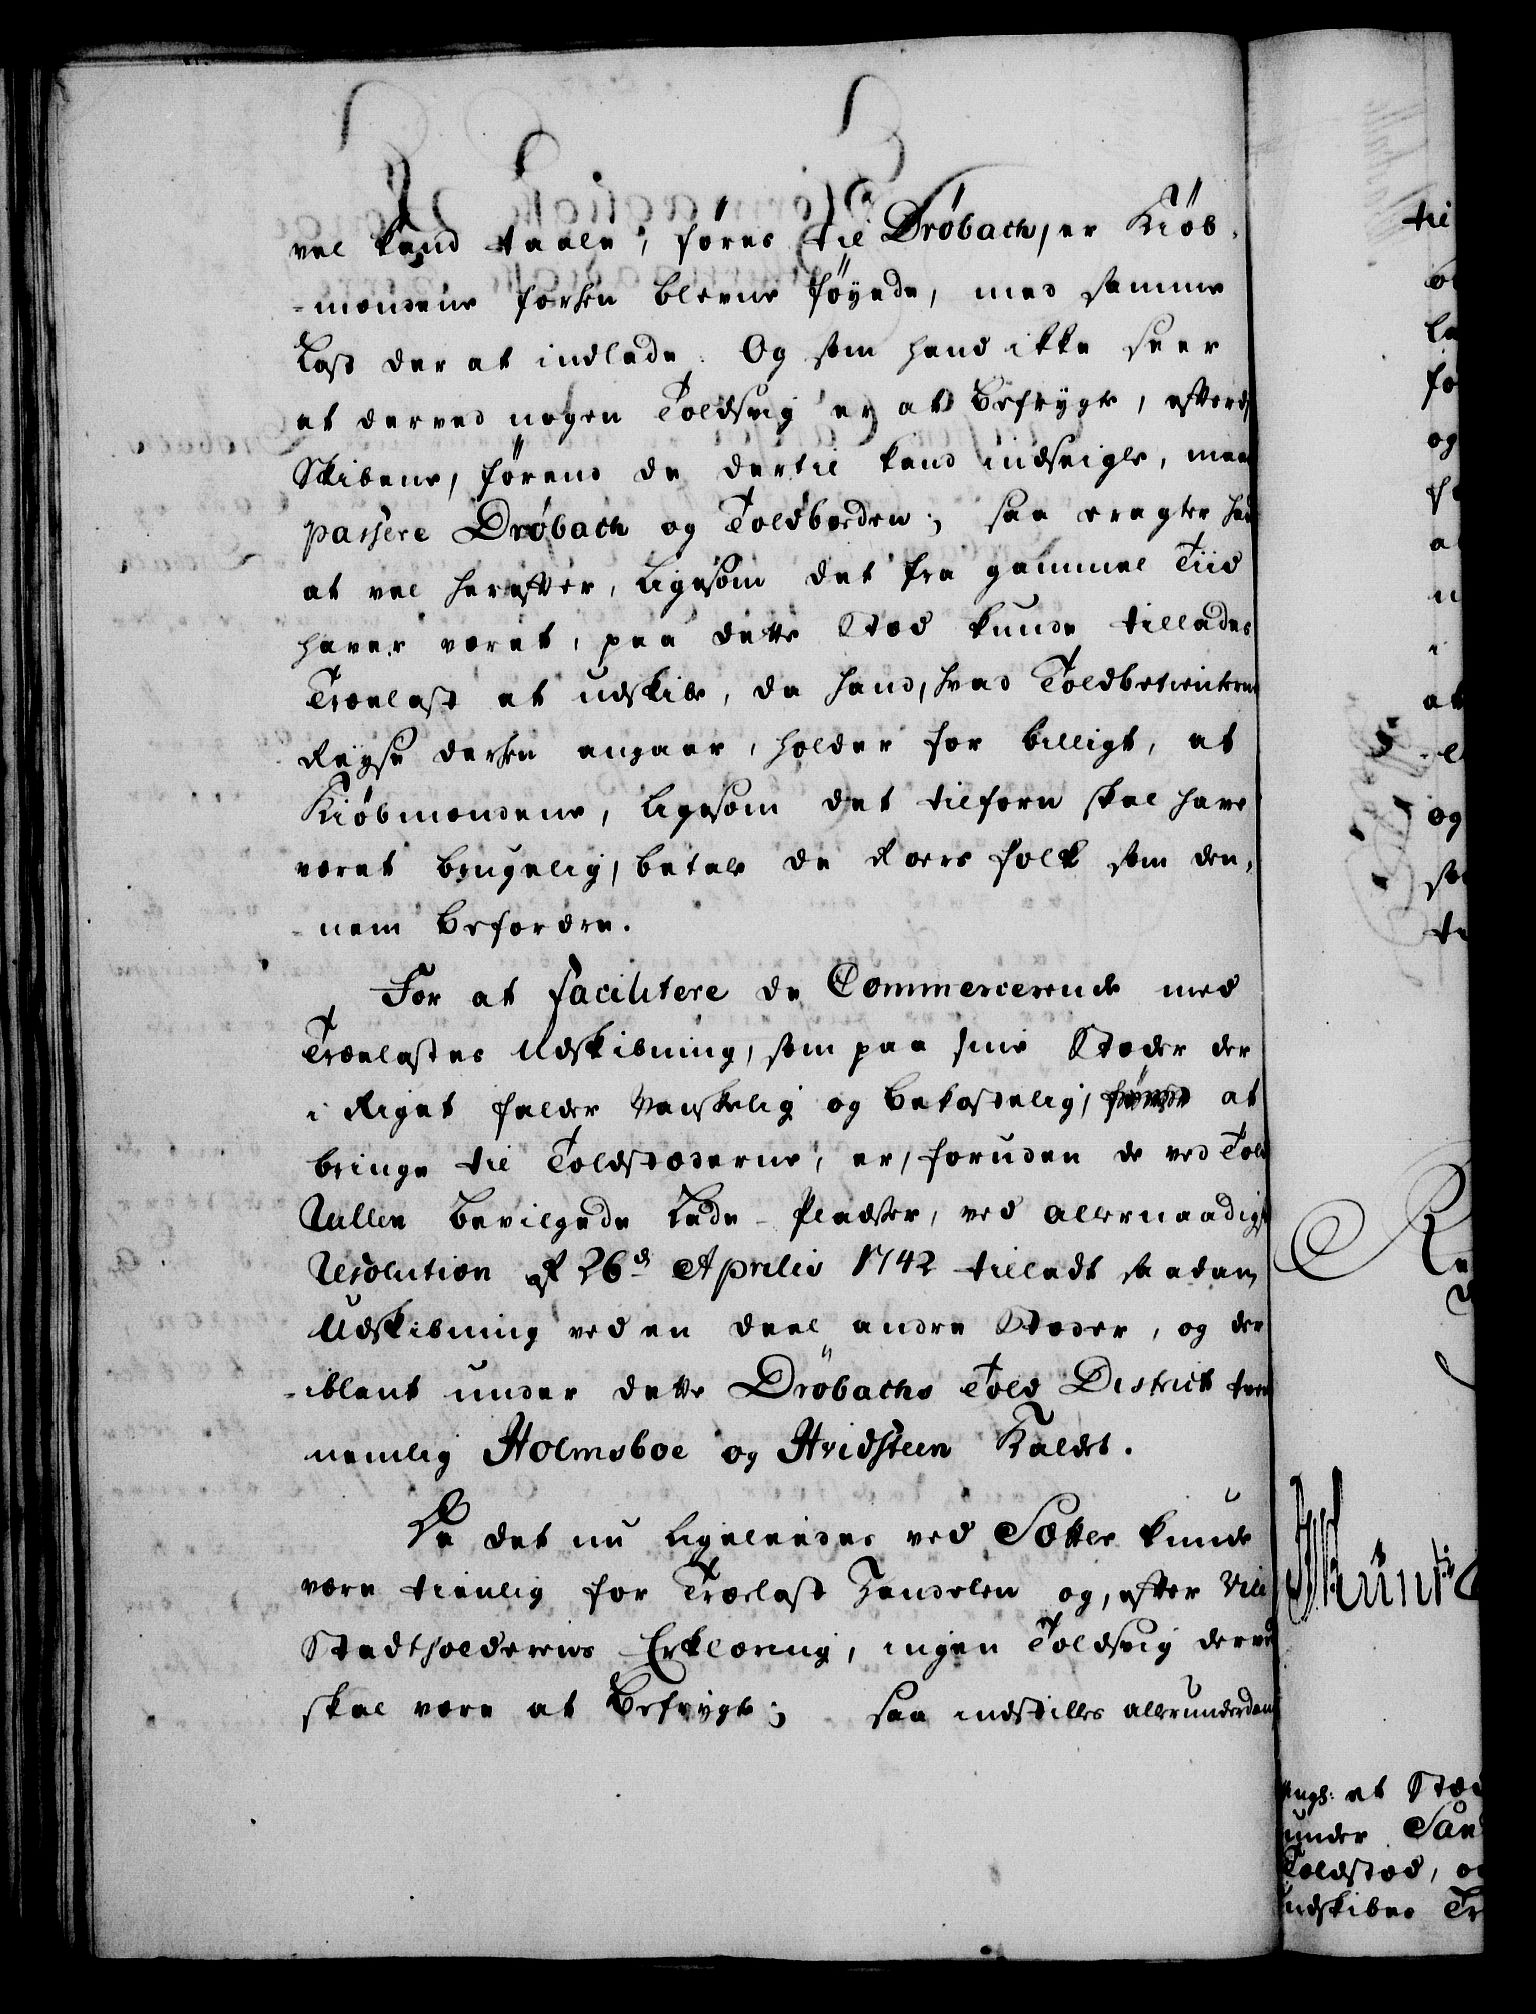 vel kand taale, føres til Drøbach, er Kiøb-
-mændene forhen blevne føyede, med samme
Last der at indlade. Og som hand ikke seer
at derved nogen Toldsvig er at befrygte, efterdi
Skibene, førend de dertil kand indseigle, maae
passere Drøbach og Toldboeden; saa eragter hand
at vel herefter, ligesom det fra gammel Tiid
haver været, paa dette Stæd kunde tillades
Trælast at udskibe, da hand, hvad Toldbetienternes
Reyse derhen angaar, holder for billigt, at
Kiøbmændene, ligesom det tilforn skal have
været brugelig, betale de Roers folk som den-
-nem befordre.
For at facilitere de Commercerende med
Trælastes Udskibning, som paa sine Stæder der
i Riget falder vanskelig og bekostelig, at
bringe til Toldstæderne, er, foruden de ved Told
Rullen bevilgede Lade-Pladser, ved allernaadigst
Resolution af 26de Aprilis 1742 tilladt saadan
Udskibning ved en deel andre Stæder, og der
-iblant under dette Drøbachs Told District tvende
nemlig Holmsboe og Hvidsteen kaldet.
Da det nu ligeleedes ved Sætter kunde
være tienlig for Trælast Handelen og, efter Vice
Stadtholderens Erklæring, ingen Toldsvig derved
skal være at befrygte; saa indstilles allerunderdan
til
og
at
og
angl: at Stæd
under San
Toldstæd, o
udskibes Tr